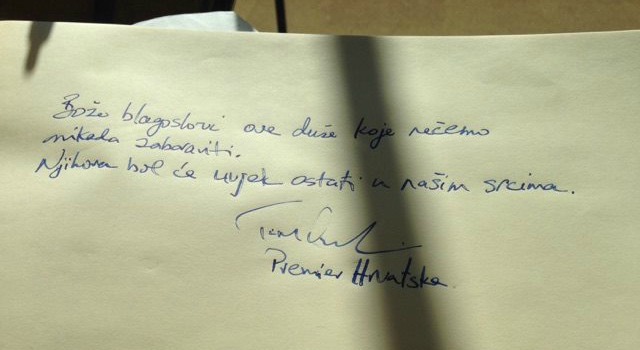 Bože blagoslovi ove duše koje nećemo
nikada zaboraviti.
Njihova bol će uvjek ostati u našim srcima.
Premier Hrvatske